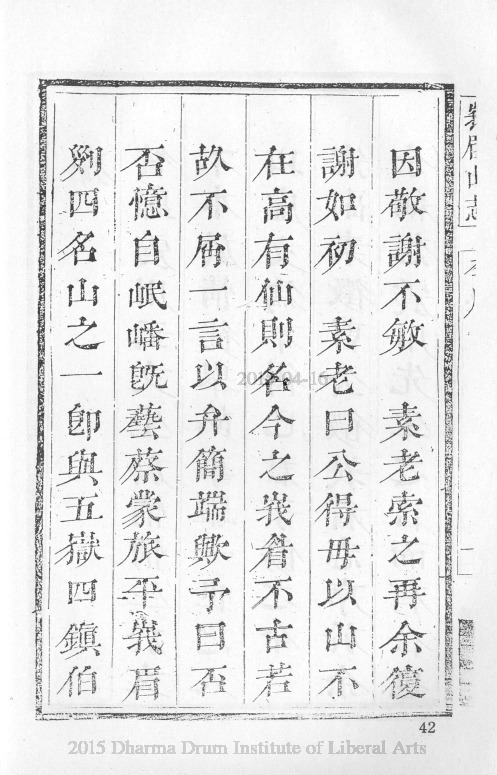 峩眉山志
因敬謝不敏　素老索之再余復
謝如初　素老曰公得毋以山不
在高有仙則名今之峩眉不古若
故不屑一言以弁簡端歟予曰否
否憶自岷嶓旣藝蔡蒙旅平峩眉
列四名山之一卽與五嶽四鎮伯
42
2015 Dharma Drum Institute of Liberal Arts